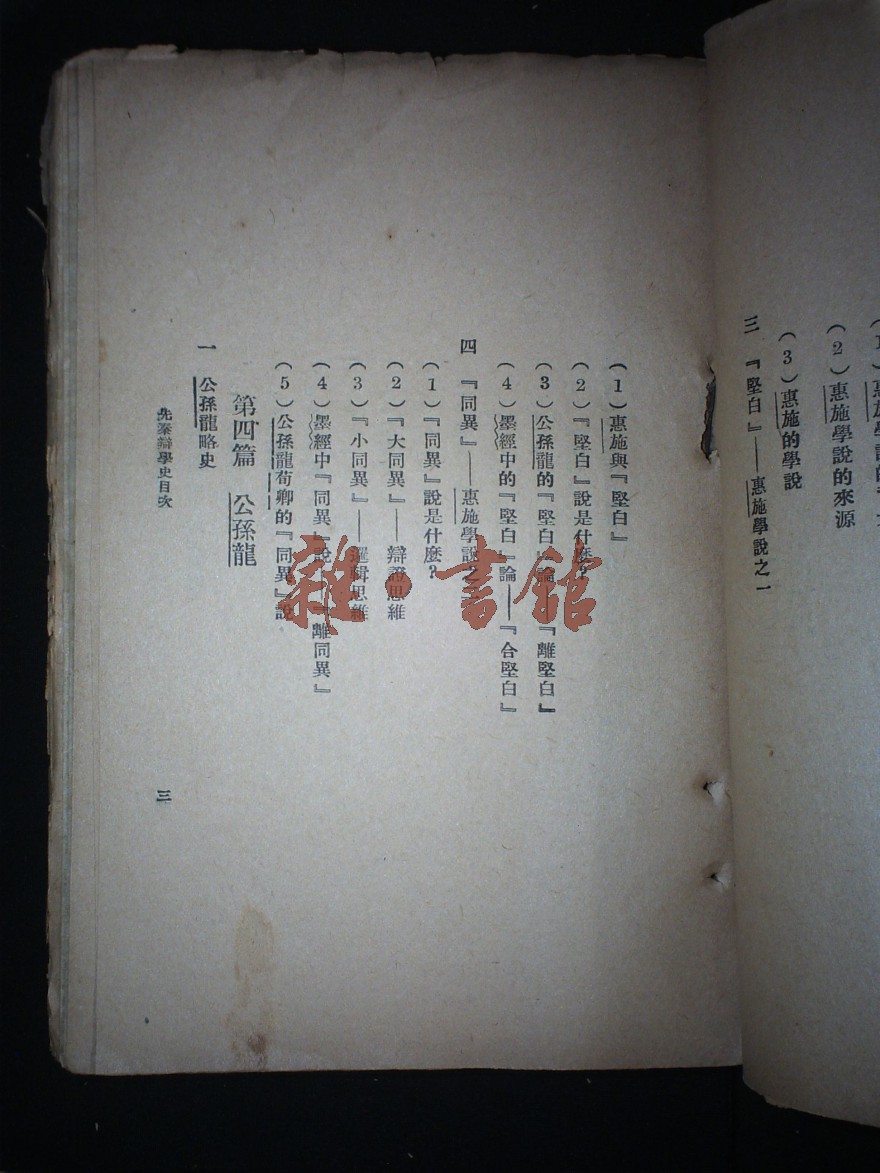 (2)惠施學說的來源
(3)惠施的學說
三 『堅白』——惠施學說之一
(1)惠施與『堅白』
(2)『堅白』說是什麼?
(3)公孫龍的『堅白』論——『離堅白』
(4)墨經中的『堅白』論——『合堅白』
四 『同異』——惠施學說之
(1)『同異』說是什麼?
(2)『大同異』——辯證思維
(3)『小同異』——邏輯思維
(4)墨經中『同異』說——『離同異』
(5)公孫龍荀卿的『同異』說
第四篇 公孫龍
一 公孫龍略史
先秦辯學史目次
三
雜·書館